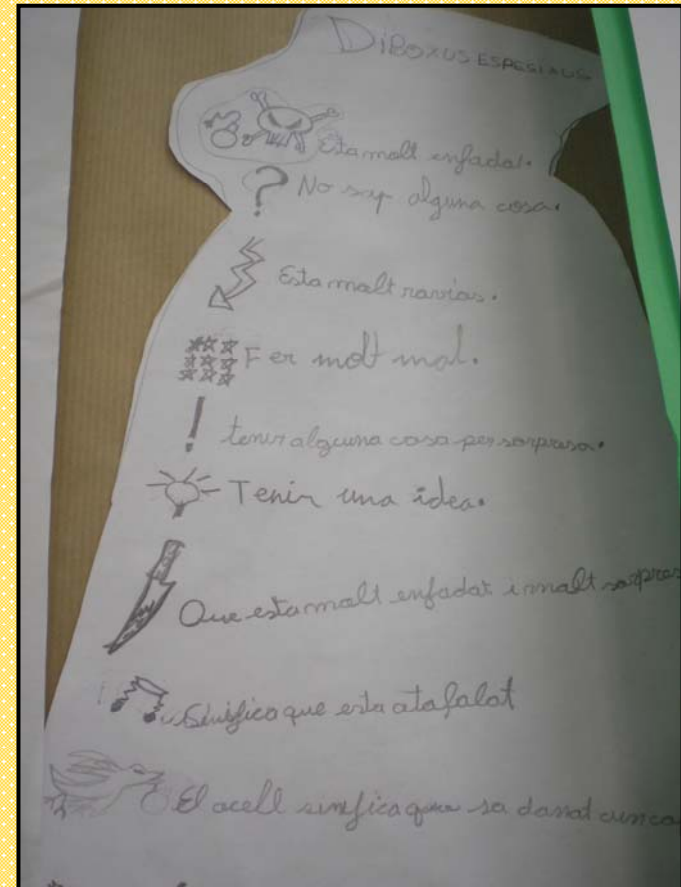 DiBOXUS ESPESIAUS
Esta molt enfadat.
? No sap alguna cosa.
Esta molt ravias.
Fer molt mal.
! tenir alguna cosa per sorpresa.
Tenir una idea.
Que esta molt enfadat i molt sorpres
Sinifica que esta atafalat
El acell sinifica que sa danat